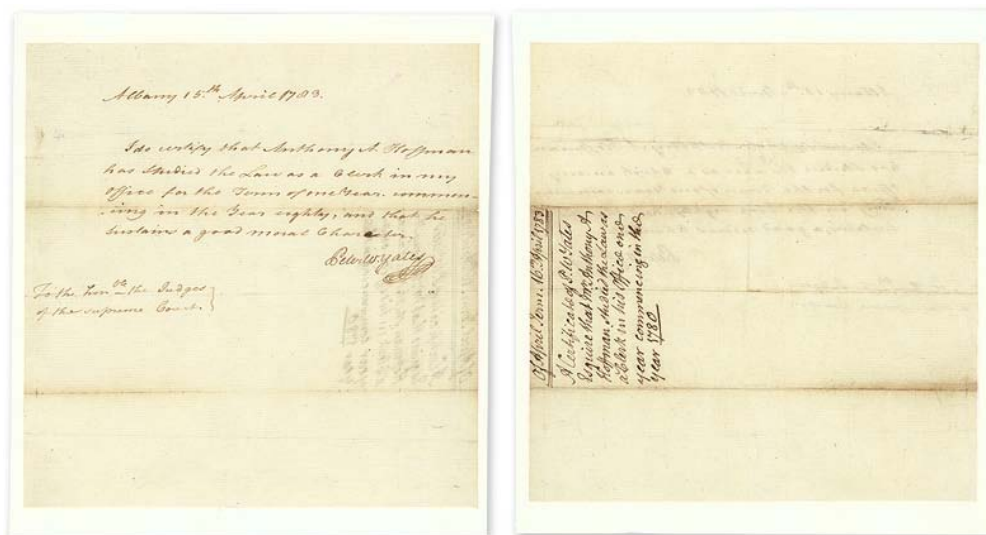 Albany 15.th April 1783.
I do certify that Anthony A. Hoffman
has Studied the Law as a Clerk in my
office for the Term of one Year. commen-
cing in the Year eighty, and that he
sustains a good moral Character.
Peter W. Yates
To the Honble the Judges
of the supreme Court.
Of April Term. 16th April 1783
A Certificate of P. W. Yates
Esquire that Mr. Anthony A
Hoffman Studied the Law as
a Clerk in his Office one
year commencing in the
year 1780